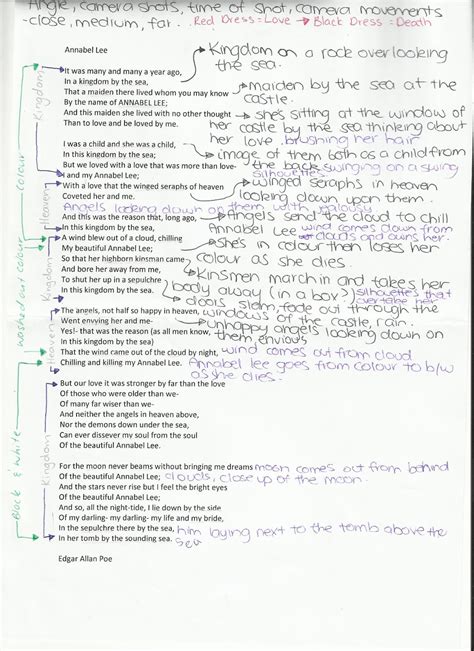 Angle, camera shots, time of shot, camera movements
-close, medium, far. Red Dress = Love → Black Dress = Death
Annabel Lee
Kingdom on a rock overlooking
the sea.
It was many and many a year ago,
In a kingdom by the sea,
maiden by the sea at the
castle.
That a maiden there lived whom you may know
By the name of ANNABEL LEE;
she's sitting at the window of
And this maiden she lived with no other thought
her castle by the sea thinking about
Than to love and be loved by me.
her love. brushing her hair
I was a child and she was a child,
image of them both as a child from
In this kingdom by the sea;
the back swinging on a swing
But we loved with a love that was more than love-
silhouettes
I and my Annabel Lee;
winged seraphs in heaven
With a love that the winged seraphs of heaven
looking down upon them.
Coveted her and me.
Angels looking down on them with jealousy
And this was the reason that, long ago,
Angels send the cloud to chill
In this kingdom by the sea,
Annabel Lee wind comes down from
A wind blew out of a cloud, chilling
clouds and ouns her.
My beautiful Annabel Lee;
she's in colour then loses her
So that her highborn kinsman came
colour as she dies.
And bore her away from me,
Kinsmen march in and takes her
To shut her up in a sepulchre
body away (in a box) silhouettes that
In this kingdom by the sea.
over take her
doors slam, fade out through the
The angels, not half so happy in heaven,
windows of the castle, rain.
Went envying her and me-
unhappy angels looking down on
Yes!- that was the reason (as all men know,
them, envious
In this kingdom by the sea)
That the wind came out of the cloud by night,
wind comes out from cloud
Chilling and killing my Annabel Lee.
Annabel lee goes from colour to b/w
as she dies.
But our love it was stronger by far than the love
Of those who were older than we-
Of many far wiser than we-
And neither the angels in heaven above,
Nor the demons down under the sea,
Can ever dissever my soul from the soul
Of the beautiful Annabel Lee.
For the moon never beams without bringing me dreams
moon comes out from behind
Of the beautiful Annabel Lee;
clouds, close up of the moon.
And the stars never rise but I feel the bright eyes
Of the beautiful Annabel Lee;
And so, all the night-tide, I lie down by the side
Of my darling- my darling- my life and my bride,
In the sepulchre there by the sea,
him laying next to the tomb above the
In her tomb by the sounding sea.
sea
Edgar Allan Poe
Kingdom
Heaven
Kingdom
Heaven
Kingdom
washed out colour
colour
Black & white